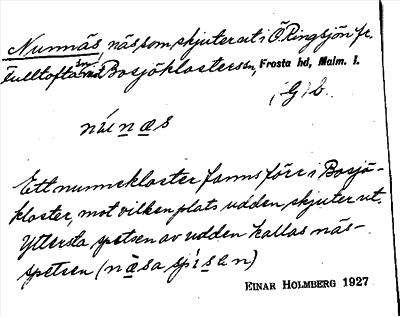 Nunnäs, näs som skjuter ut i Ö. Ringsjön fr.
Fulltofta sn mot Bosjöklosters sn, Frosta hd, Malm. l.
G. b.
núnæs
Ett nunnekloster fanns förr i Bosjö-
kloster, mot vilken plats udden skjuter ut.
Yttersta spetsen av udden kallas näs-
spetsen (næsa spísan)
EINAR HOLMBERG 1927